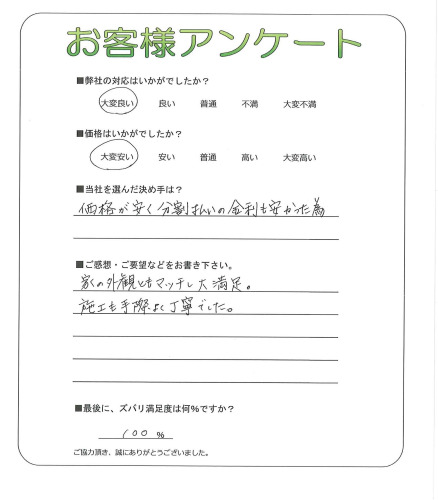 お客様アンケート
■弊社の対応はいかがでしたか？
大変良い 良い 普通 不満 大変不満
■価格はいかがでしたか？
大変安い 安い 普通 高い 大変高い
■当社を選んだ決め手は？
価格が安く分割払いの金利も安かった為
■ご感想・ご要望などをお書き下さい。
家の外観ともマッチし大満足。
施工も手際よく丁寧でした。
■最後に、ズバリ満足度は何%ですか？
100 %
ご協力頂き、誠にありがとうございました。